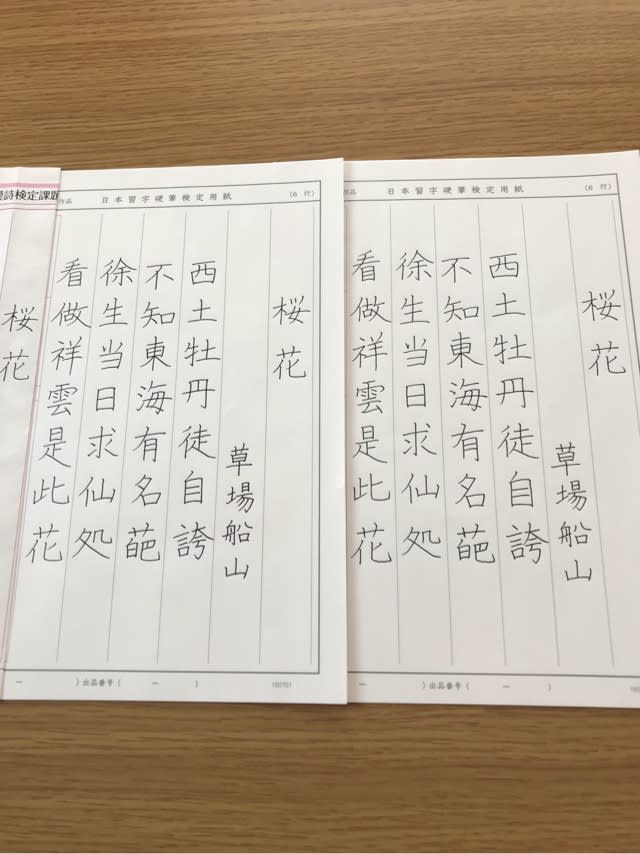 作品 日本習字硬筆検定用紙 (6 行)
桜花
草場船山
西土牡丹徒自誇
不知東海有名葩
徐生当日求仙処
看做祥雲是此花
ー )出品番号( ー )
作品 日本習字硬筆検定用紙 (6 行)
桜花
草場船山
西土牡丹徒自誇
不知東海有名葩
徐生当日求仙処
看做祥雲是此花
ー )出品番号( ー ) 150701
詩検定課題
桜花